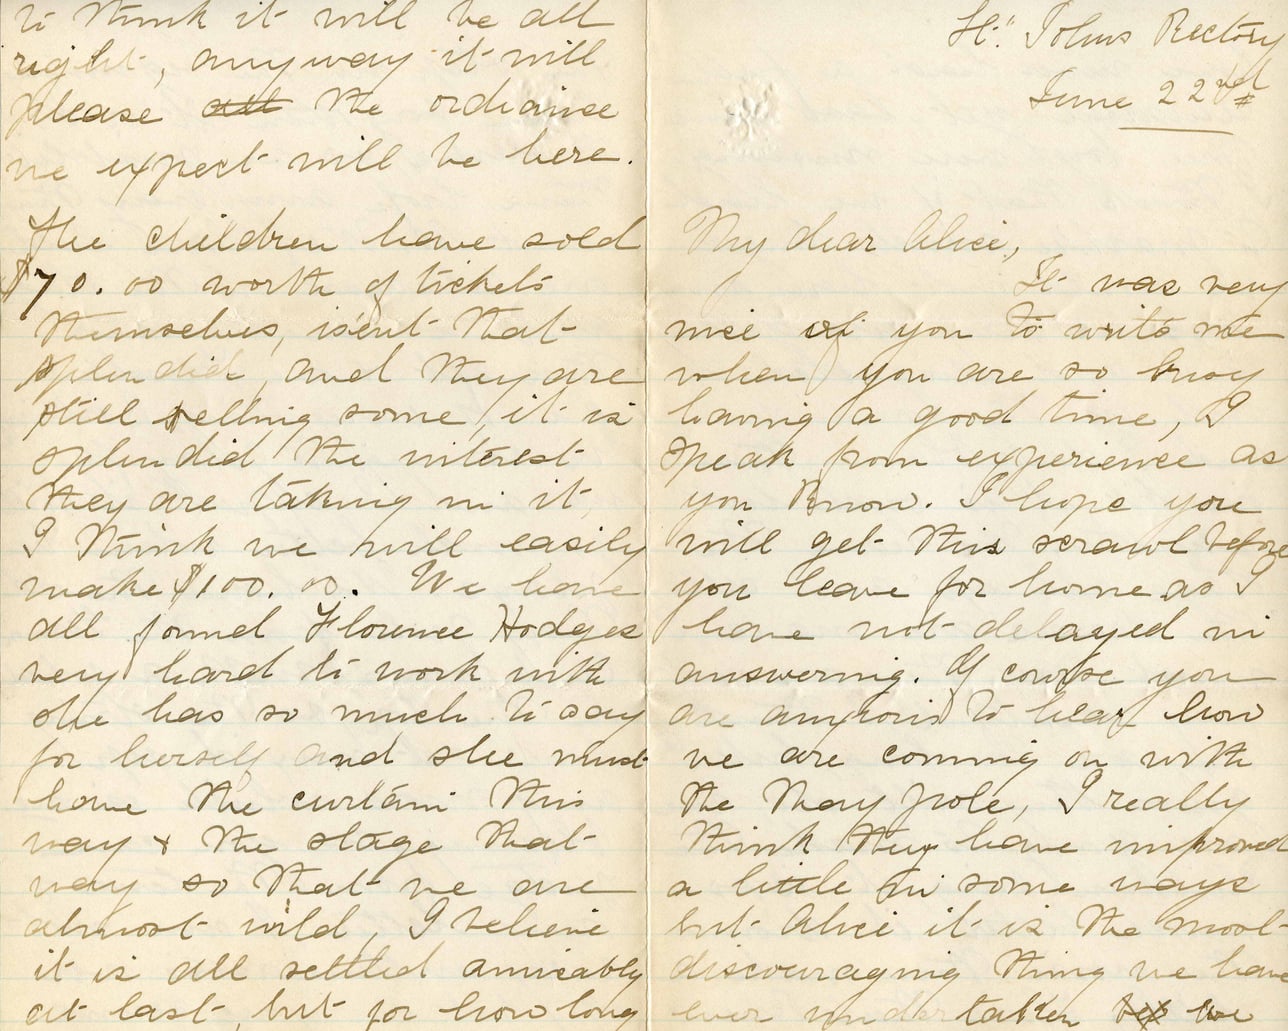 St." Johns Rectory
June 22nd
My dear Alice,
It was very
nice of you to write me
when you are so busy
having a good time, I
speak from experience as
you know. I hope you
will get this scrawl before
you leave for home as I
have not delayed in
answering. Of course you
are anxious to hear how
we are coming on with
the May pole, I really
think they have improved
a little in some ways
but Alice it is the most
discouraging thing we have
ever undertaken we
to think it will be all
right, anyway it will
please all the ordiance
we expect will be here.
The children have sold
$70.00 worth of tickets
themselves, is'ent that
splendid, and they are
still selling some, it is
splendid the interest
they are taking in it,
I think we will easily
make $100.00. We have
all found Florence Hodges
very hard to work with
she has so much to say
for herself and she must
have the curtain this
way & the stage that
way so that we are
almost wild, I believe
it is all settled amicably
at last, but for how long